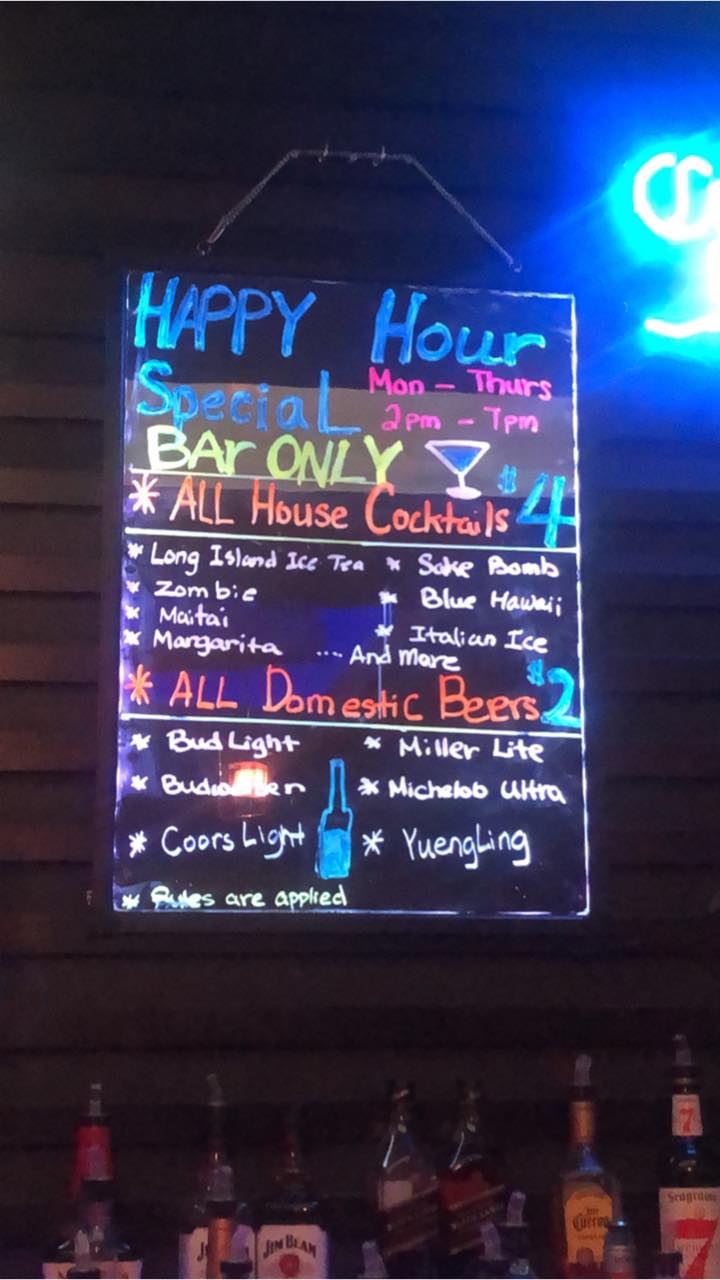 HAPPY Hour
Special Mon - Thurs
2pm - 7pm
BAr ONLY
* ALL House Cocktails $4
* Long Island Ice Tea * Sake Bomb
* Zombie * Blue Hawaii
* Maitai
* Margarita * Italian Ice
.... And More
* ALL Domestic Beers $2
* Bud Light * Miller Lite
* Budweiser * Michelob Ultra
* Coors Light * YuengLing
* Rules are applied
7
Seagram's
7
JIM BEAM
Jose
Cuervo